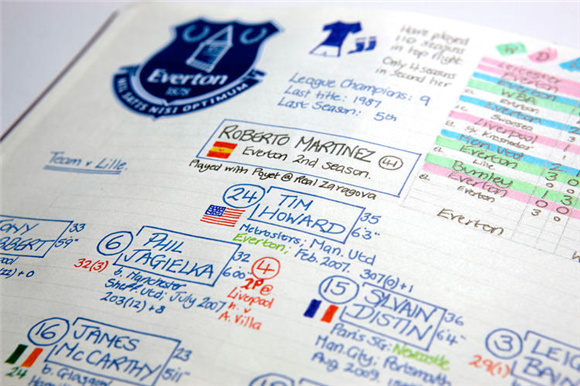 Everton
1878
NIL SATIS NISI OPTIMUM
Have played
110 seasons
in top flight
Only 4 seasons
in Second tier
League Champions: 9
Last title: 1987
Last Season: 5th
Leicester
Everton
WBA
Everton
Everton
Swansea
Everton
Liverpool
Everton
FK Krasnodar
Man Utd
Everton
Lille
Burnley
Everton
Everton
Everton
1 3
3 0
0 0
ROBERTO MARTINEZ 41
Everton 2nd Season.
Played with Poyet @ Real Zaragova
Team v Lille
24 TIM
HOWARD
35
6'3"
Metrostars; Man. Utd
Everton; Feb. 2007.
307(0)+1
TONY
HIBBERT
33
5'9"
6 PHIL
JAGIELKA
32
6'00"
32(3)
b. Manchester
Sheff. Utd; July 2007
203(12)+8
4
2P @
Liverpool
h v
A. Villa
15 SYLVAIN
DISTIN
36
6'4"
Paris SG; Newcastle
Man. City; Portsmouth
Aug 2009
3 LEIG
BAI
29(1)
16 JAMES
McCARTHY
23
5'11"
24
b. Glasgow
(2)+0